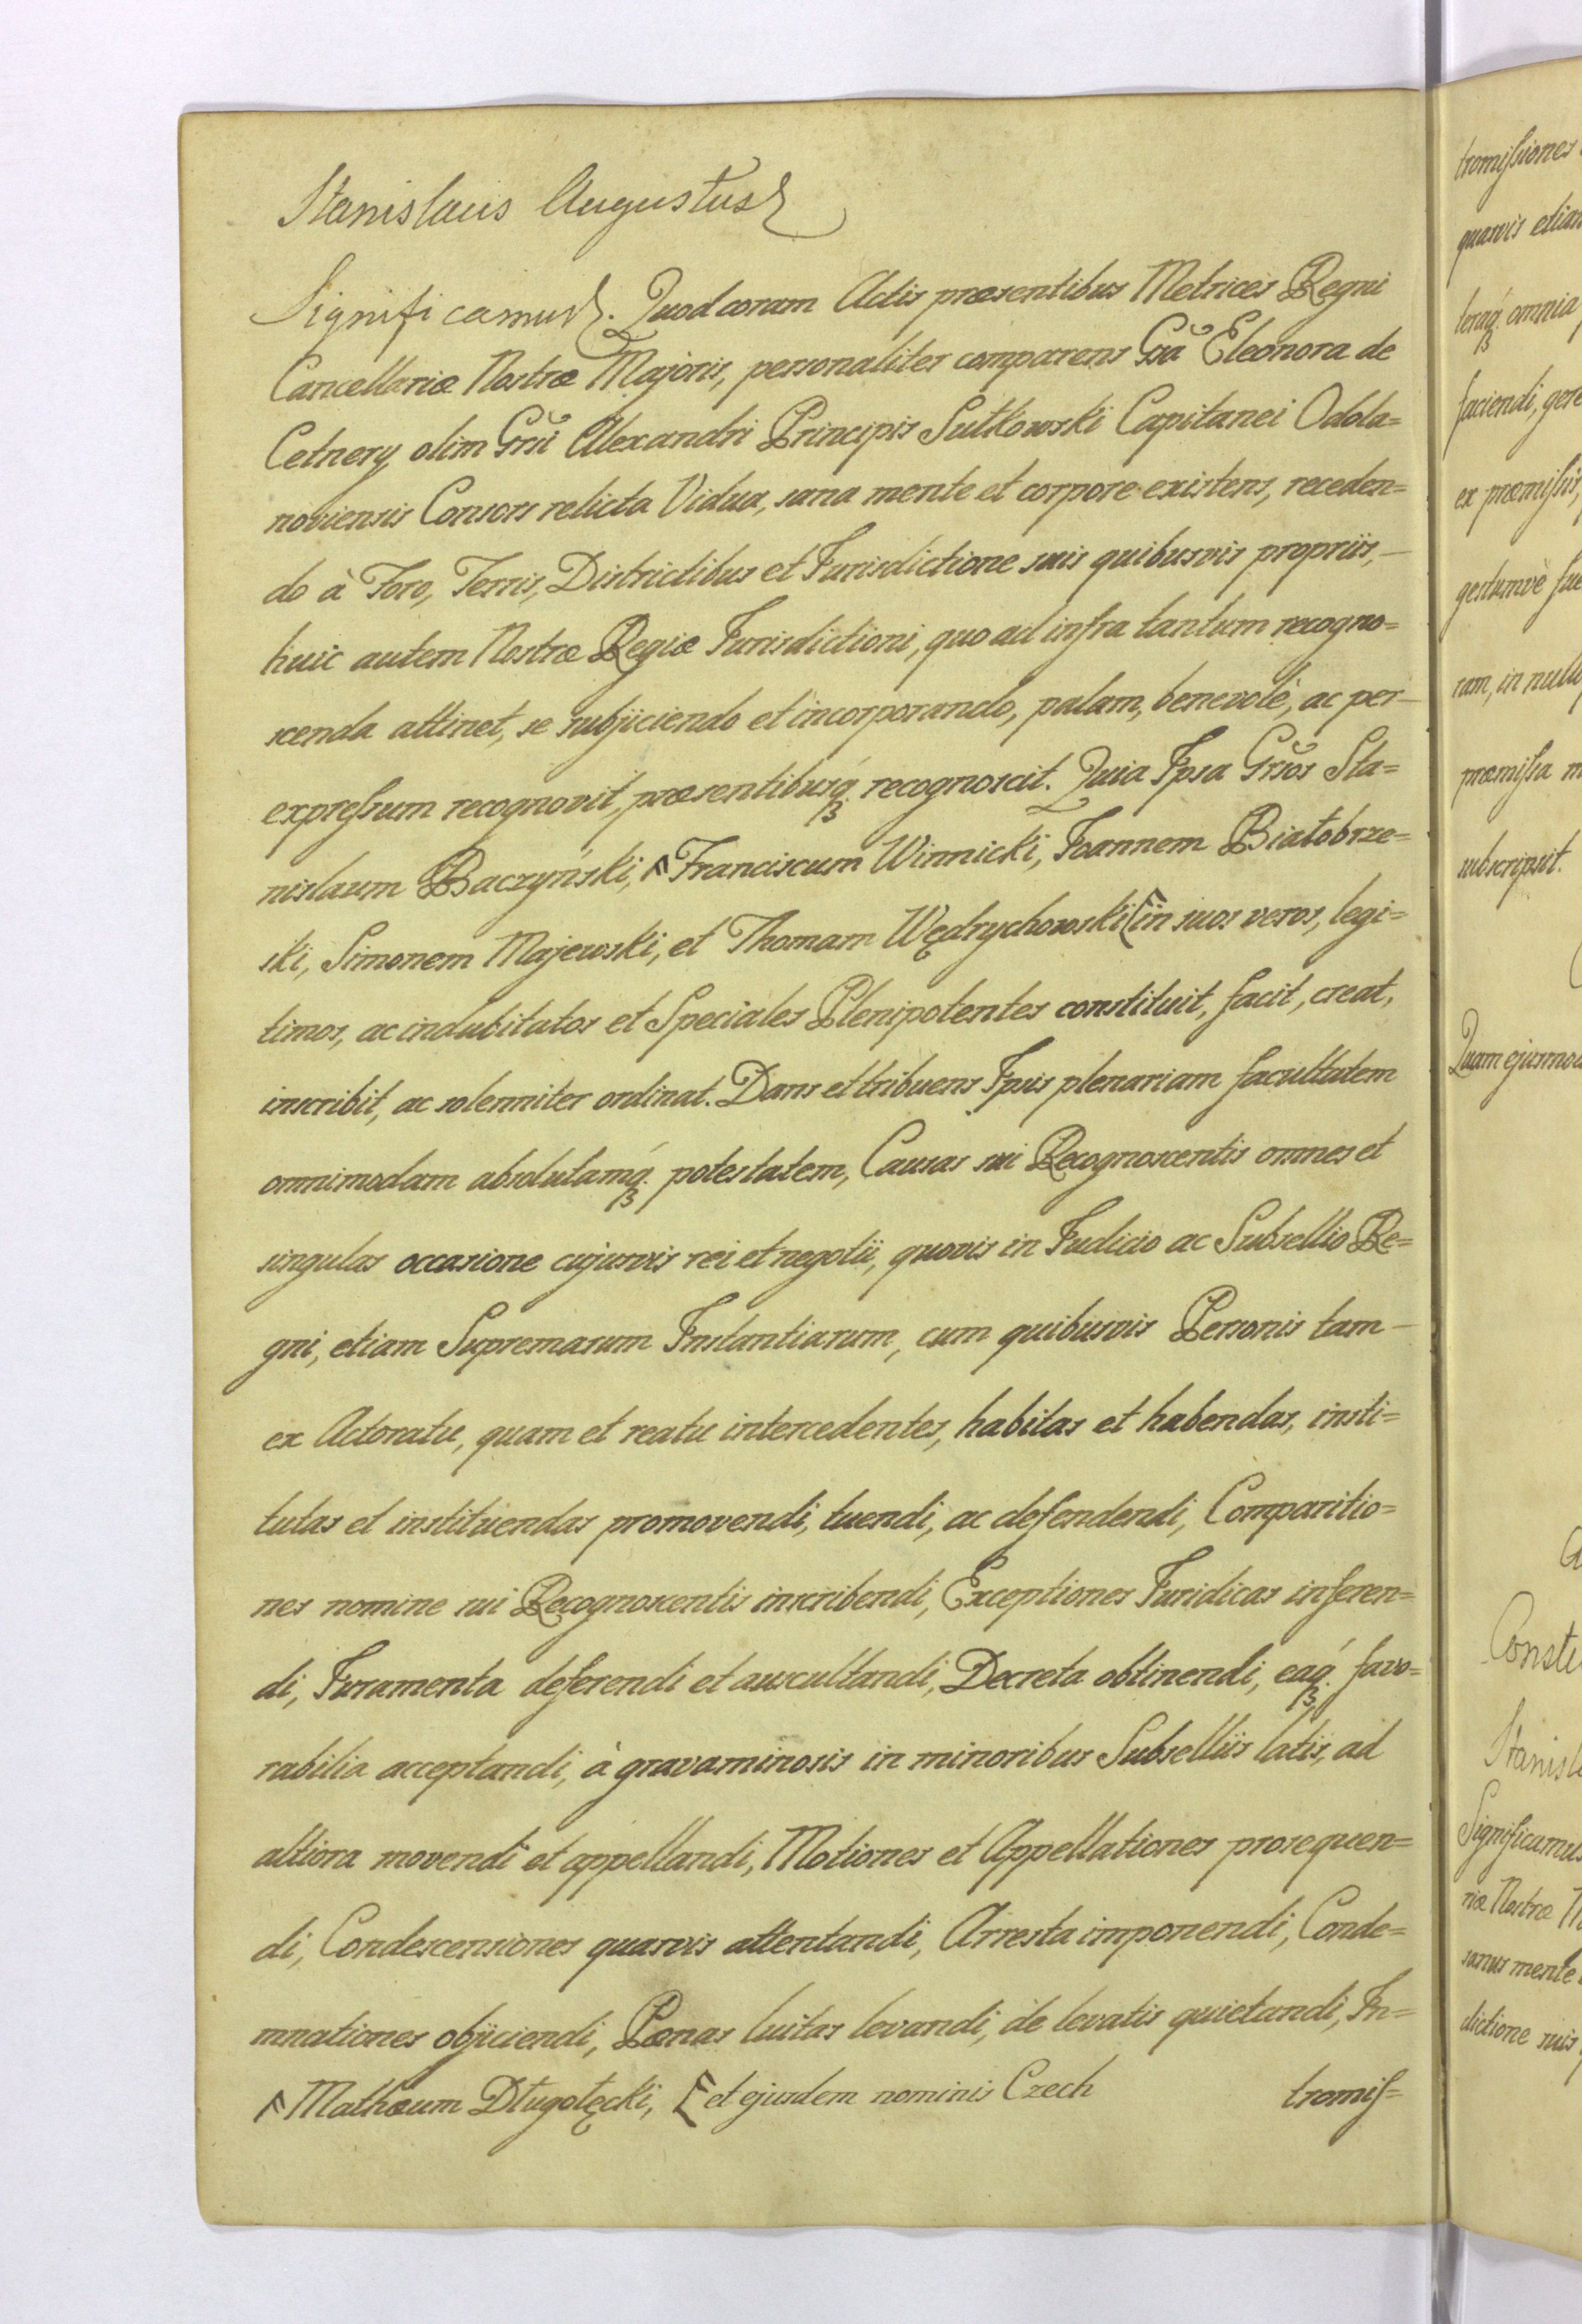 Stanislaus Augustus
Significamus. Quod coram Actis præsentibus Metrices Regni
Cancellariæ Nostræ Majoris, personaliter comparens Gsa Eleonora de
Cetnery olim Grsi Alexandri Principis Sułkowski Capitanei Odola=
noviensis Consors relicta Vidua, sana mente et corpore existens, receden=
do à Foro, Terris, Districtibus et Jurisdictione suis quibusvis propriis,—
huic autem Nostræ Regiæ Jurisdictioni, quo ad infra tantum recogno=
scenda attinet, se subjiciendo et incorporando, palam, benevolè, ac per—
expressum recognovit, præsentibusq́ꝫ recognoscit. Quia Ipsa Grsos Sta=
nislaum Baczyński, Franciscum Winnicki, Joannem Białobrze=
ski, Simonem Majewski, et Thomam Wędrychowski in suos veros, legi=
timos, ac indubitatos et Speciales Plenipotentes constituit, facit, creat,
inscribit, ac solenniter ordinat. Dans et tribuens Ipsis plenariam facultatem
omnimodam absolutamq́ꝫ potestatem, Causas sui Recognoscentis omnes et
singulas occasione cujusvis rei et negotii, quovis in Judicio ac Subsellio Re=
gni, etiam Supremarum Instantiarum, cum quibusvis Personis tam—
ex Actoratu, quam et reatu intercedentes, habitas et habendas, insti=
tutas et instituendas promovendi, tuendi, ac defendendi, Comparitio=
nes nomine sui Recognoscentis inscribendi, Exceptiones Juridicas inferen=
di, Juramenta deferendi et auscultandi, Decreta obtinendi, eaq́ꝫ favo=
rabilia acceptandi, à gravaminosis in minoribus Subselliis latis, ad
altiora movendi et appellandi, Motiones et Appellationes prosequen=
di, Condescensiones quasvis attentandi, Arresta imponendi, Conde=
mnationes objiciendi, Pœnas luitas levandi, de levatis quietandi, In=
Mathæum Długołęcki, et ejusdem nominis Czech
tromis=
tromissiones
quasvis etiam
teraq́ꝫ omnia
faciendi, gere
ex præmissis,
gestumvè fue
ram, in null
præmissa m
subscripsit.
Quam ejusmod
Const
Stanisl
Significamus
riæ Nostræ
sanus mente
dictione suis